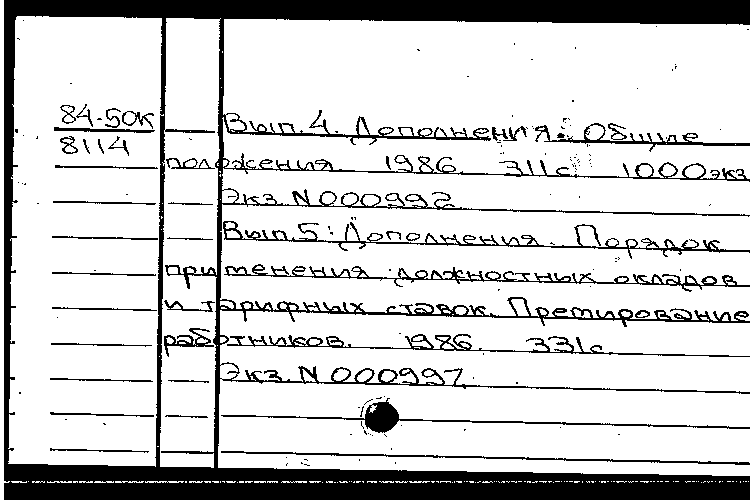 84-50К
8114
Вып. 4. Дополнения. Общие
положения. 1986. 311с. 1000экз.
Экз. N 000992
Вып. 5: Дополнения. Порядок
применения должностных окладов
и тарифных ставок. Премирование
работников. 1986. 331с.
Экз. N 000997.